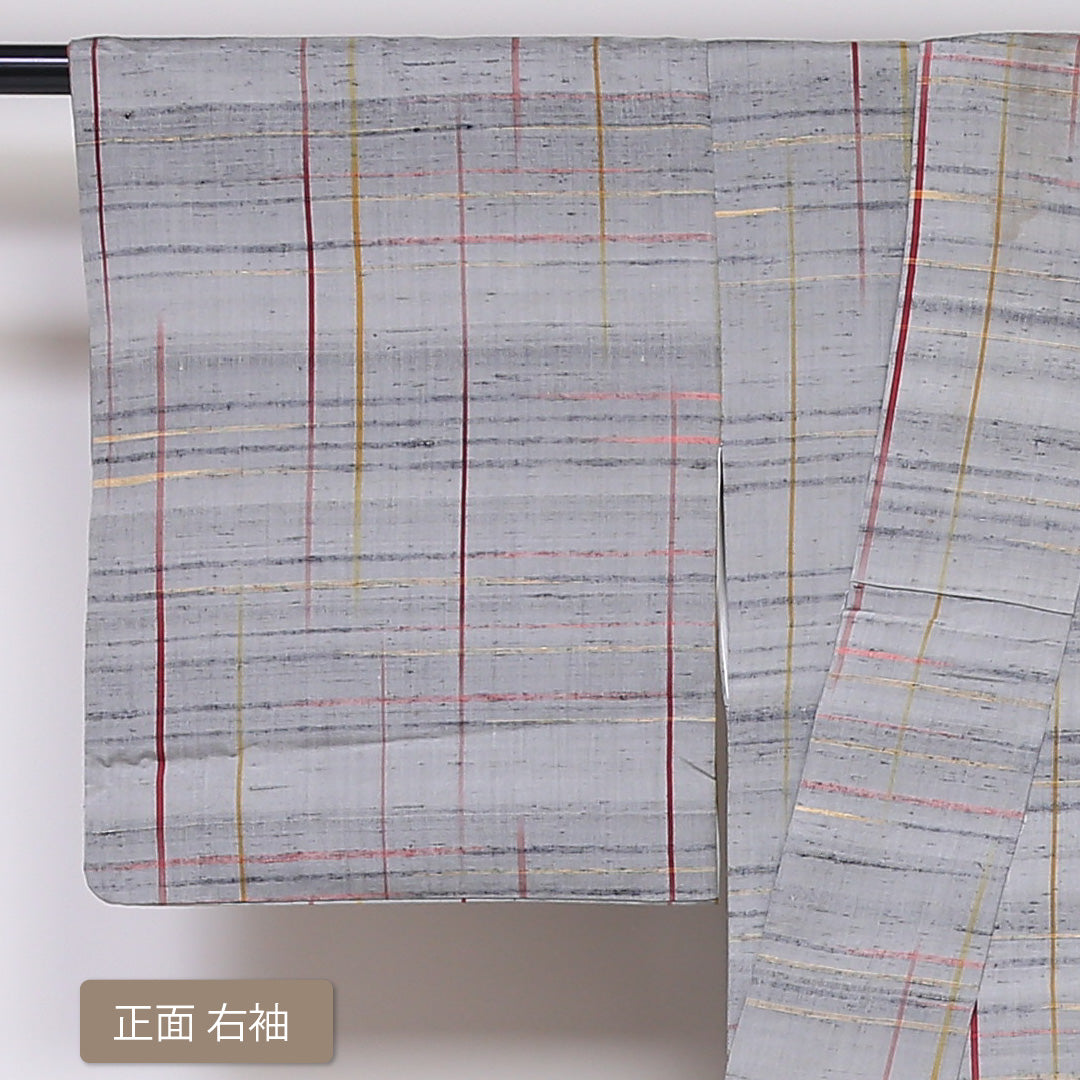 正面 右袖